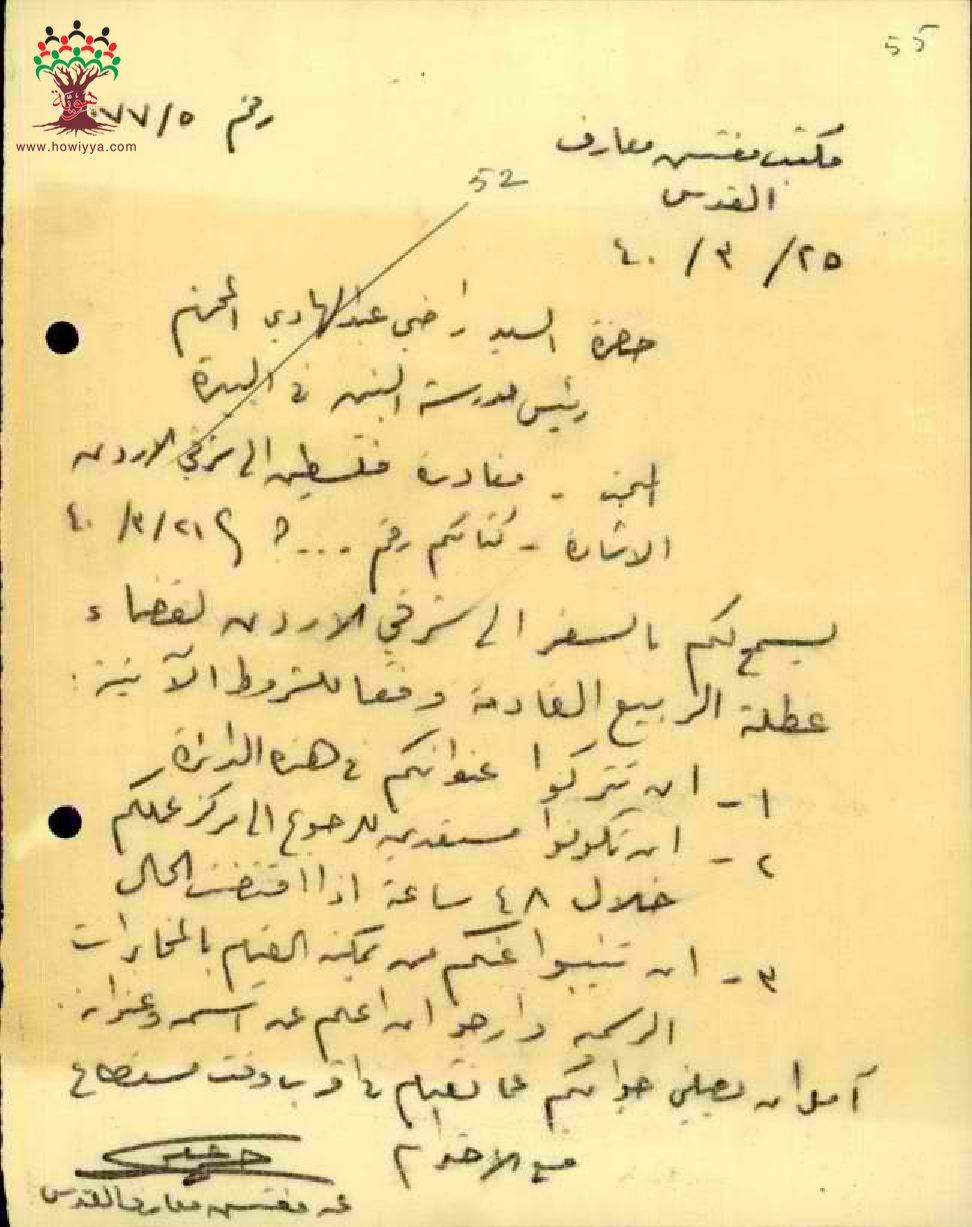 55
هوية
www.howiyya.com
رقم ٧٧/٥
مكتب مفتش معارف
القدس
٢٥/٣/٤٠
52
حضرة السيد راضي عبد الهادي المحترم
رئيس مدرسة البنين في البيرة
البحث - مغادرة فلسطين الى شرقي الاردن
الاشارة - كتابكم رقم ...؟ ٢١/٣/٤٠
يسمح لكم بالسفر الى شرقي الاردن لقضاء
عطلة الربيع القادمة وفقا للشروط الآتية:
١- ان تتركوا عنوانكم في هذه الدائرة
٢- ان تكونوا مستعدين للرجوع الى مركز عملكم
خلال ٤٨ ساعة اذا اقتضت الحال
٣- ان تنيبوا عنكم من يمكنه القيام بالمخابرات
الرسمية وارجو ان اعلم عن اسمه وعنوانه.
آمل ان يصلني جوابكم عما تقدم في اقرب وقت مستطاع
مع الاحترام
عن مفتش معارف القدس